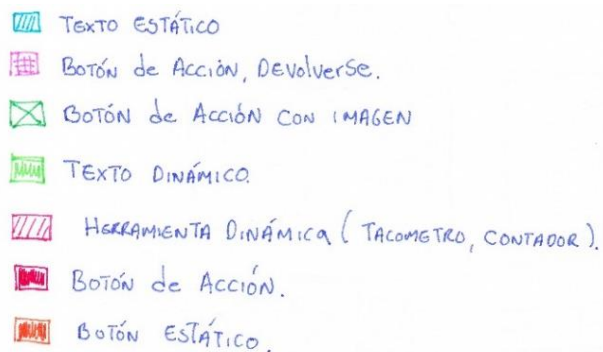 TEXTO ESTÁTICO
BOTÓN de ACCIÓN, DEVolverSe.
BOTÓN de ACCIÓN CON IMAGEN
TEXTO DINÁMICO.
HERRAMIENTA DINÁMICA ( TACOMETRO, CONTADOR ).
BOTÓN de ACCIÓN.
BOTÓN ESTÁTICO.